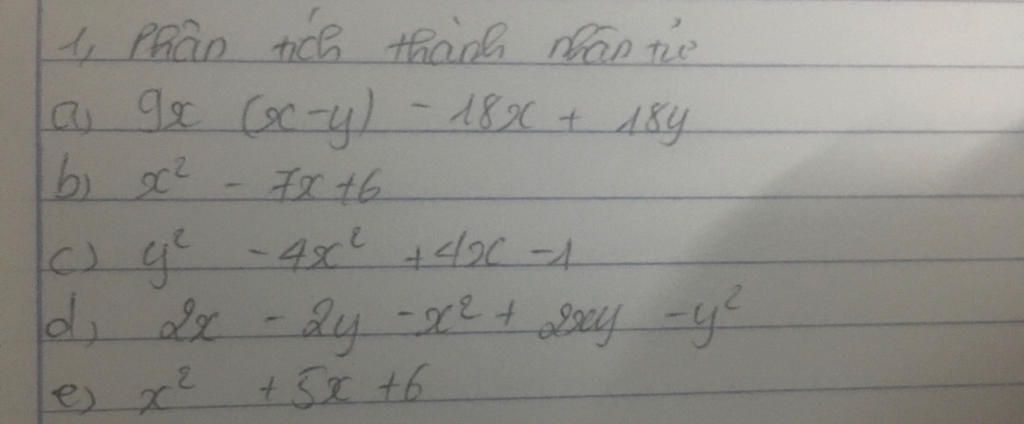 1, Phân tích thành nhân tử
a, 9x (x-y) - 18x + 18y
b) x² - 7x+6
c) y² - 4x² + 4x - 1
d, 2x - 2y - x² + 2xy - y²
e) x² + 5x + 6